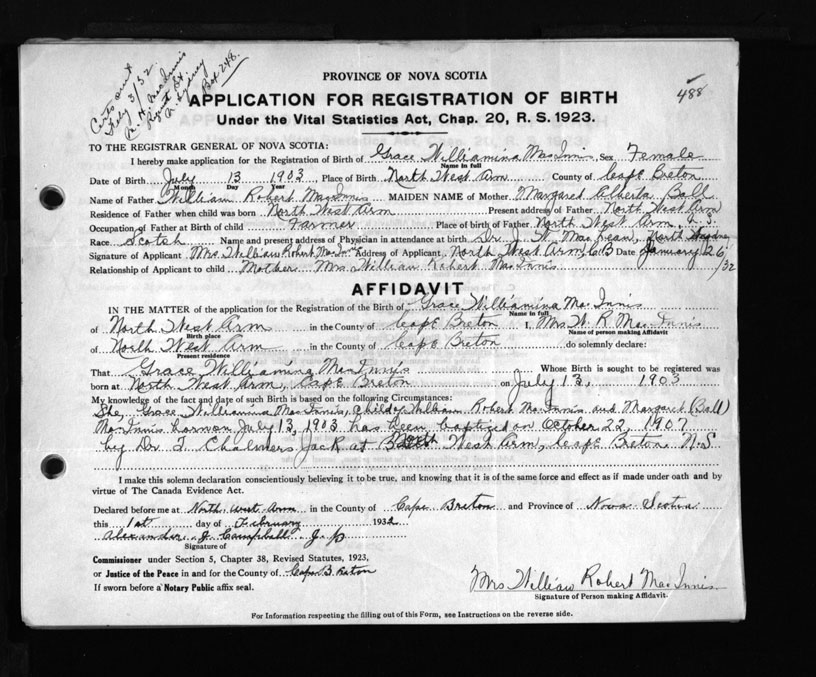 Certs out
Feby 3/32
R. H. MacInnis
Regent St
N. Sydney
Box 248.
488
PROVINCE OF NOVA SCOTIA
APPLICATION FOR REGISTRATION OF BIRTH
Under the Vital Statistics Act, Chap. 20, R. S. 1923.
TO THE REGISTRAR GENERAL OF NOVA SCOTIA:
I hereby make application for the Registration of Birth of Grace Williamina MacInnis, Sex Female
Name in full
Date of Birth July 13 1903, Place of Birth North West Arm County of Cape Breton
Month Day Year
Name of Father William Robert MacInnis MAIDEN NAME of Mother Margaret Alberta Ball
Residence of Father when child was born North West Arm Present address of Father North West Arm
Occupation of Father at Birth of child Farmer Place of birth of Father North West Arm, N.S.
Race Scotch Name and present address of Physician in attendance at birth Dr J. W. MacLean, North Sydney
Signature of Applicant Mrs William Robert MacInnis Address of Applicant North West Arm, C.B Date January 26/32
Relationship of Applicant to child Mother Mrs William Robert MacInnis
AFFIDAVIT
IN THE MATTER of the application for the Registration of the Birth of Grace Williamina MacInnis
Name in full
of North West Arm in the County of Cape Breton I, Mrs W. R. MacInnis
Birth place Name of person making Affidavit
of North West Arm in the County of Cape Breton do solemnly declare:
Present residence
That Grace Williamina MacInnis Whose Birth is sought to be registered was
born at North West Arm, Cape Breton on July 13, 1903
My knowledge of the fact and date of such Birth is based on the following Circumstances:
She, Grace Williamina MacInnis, child of William Robert MacInnis and Margaret (Ball)
MacInnis born on July 13, 1903 has been baptized on October 22, 1907
by Dr T. Chalmers Jack at North West Arm, Cape Breton N.S
I make this solemn declaration conscientiously believing it to be true, and knowing that it is of the same force and effect as if made under oath and by
virtue of The Canada Evidence Act.
Declared before me at North West Arm in the County of Cape Breton and Province of Nova Scotia
this 1st day of February 1932
Alexander J. Campbell J. P
Signature of
Commissioner under Section 5, Chapter 38, Revised Statutes, 1923,
or Justice of the Peace in and for the County of Cape Breton
If sworn before a Notary Public affix seal.
Mrs William Robert MacInnis
Signature of Person making Affidavit.
For Information respecting the filling out of this Form, see Instructions on the reverse side.